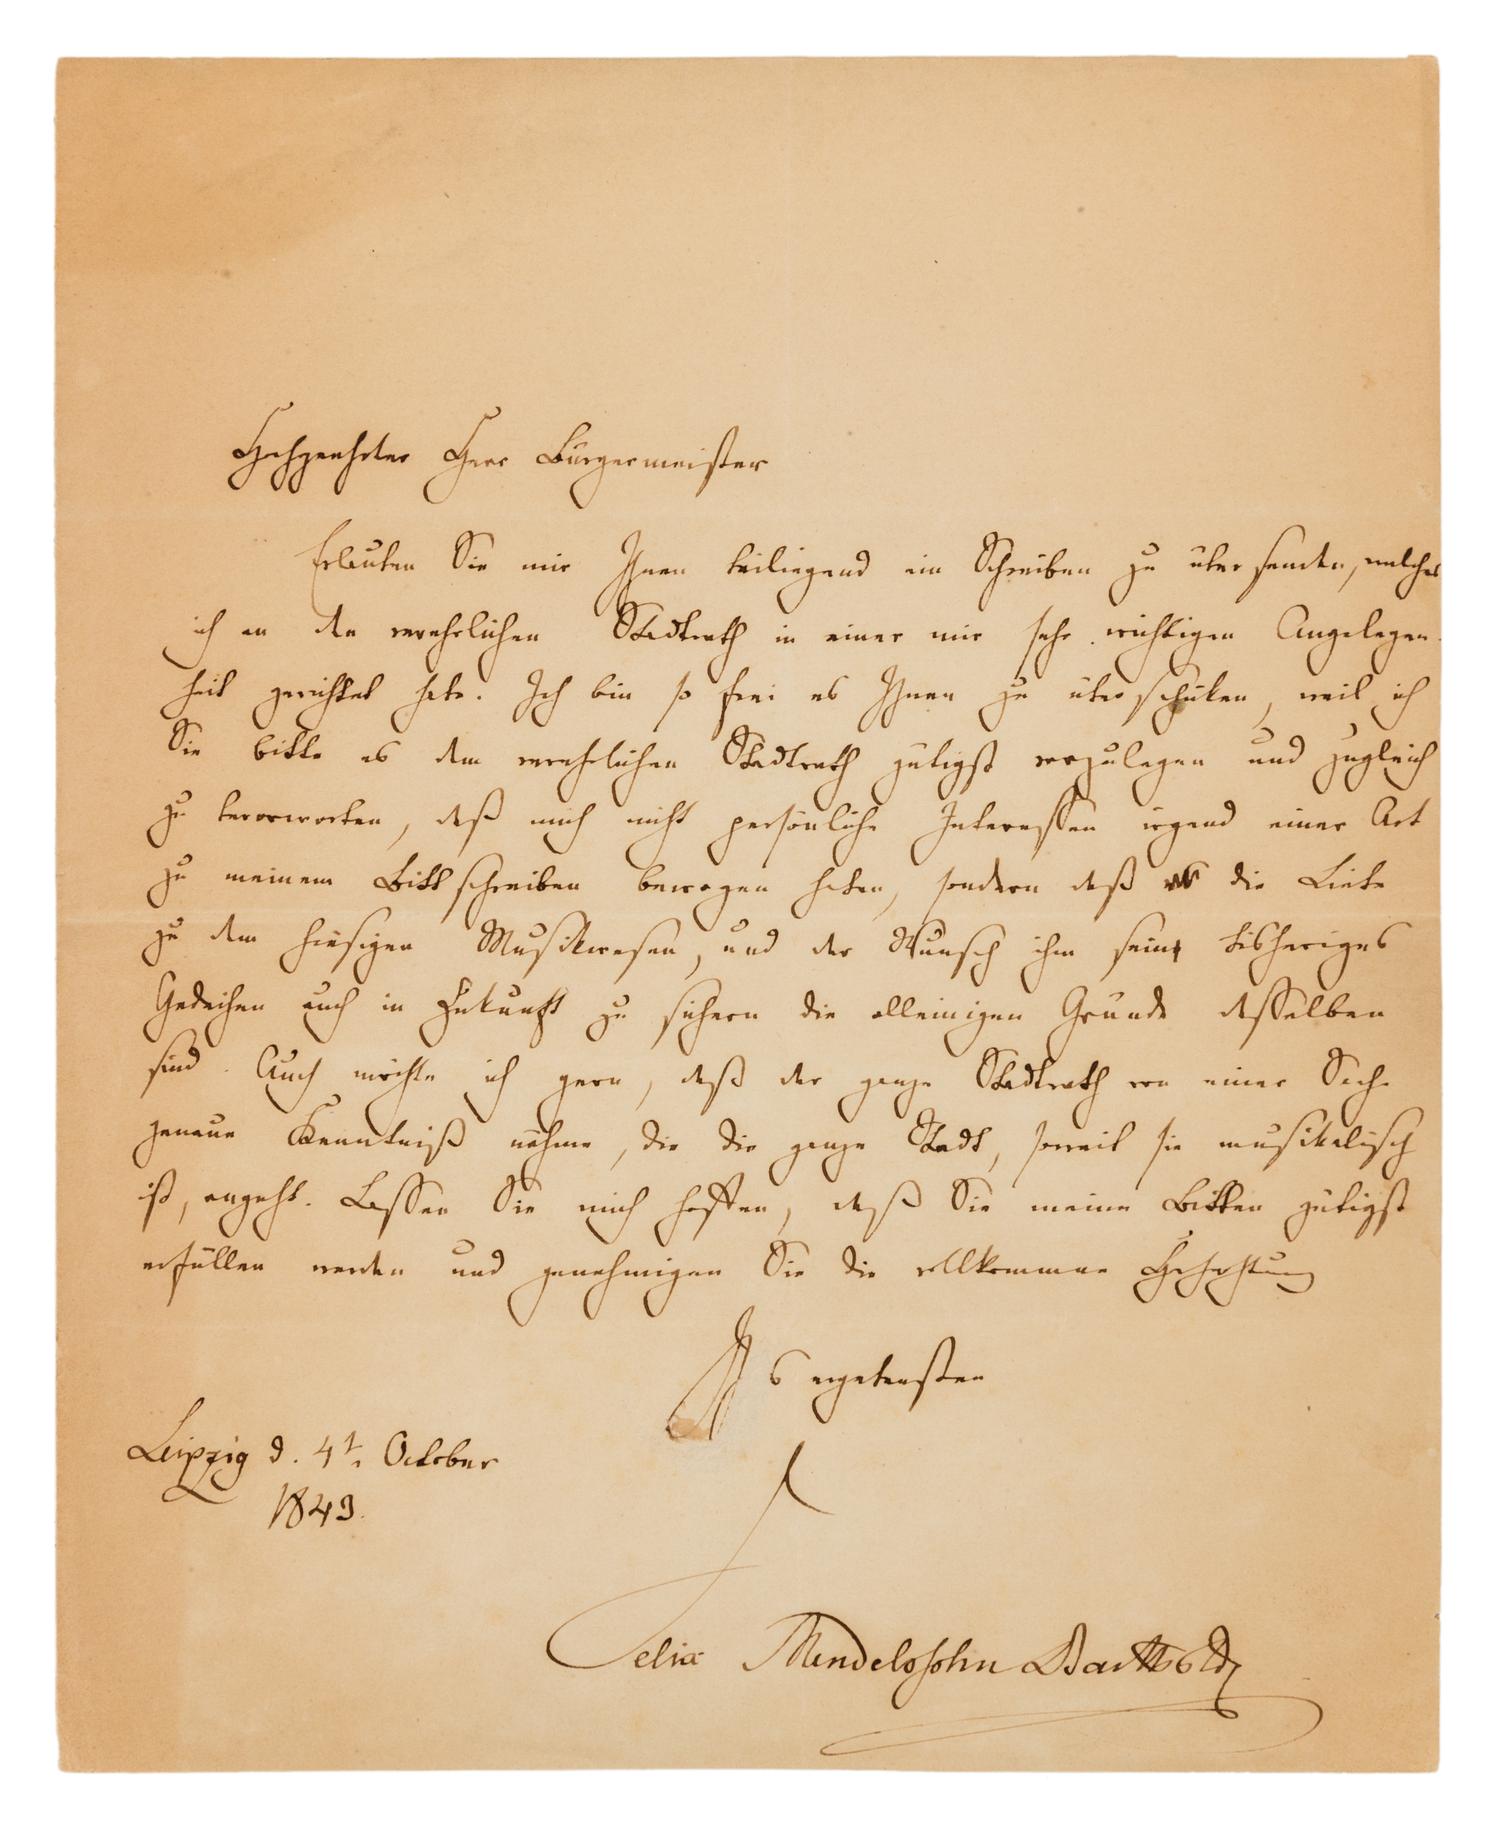 Hochgeehrter Herr Bürgermeister
Erlauben Sie mir Ihnen beiliegend ein Schreiben zu übersenden, welches
ich an den verehrlichen Stadtrath in einer mir sehr wichtigen Angelegen-
heit gerichtet habe. Ich bin so frei es Ihnen zu überschicken, weil ich
Sie bitte es dem verehrlichen Stadtrath gütigst vorzulegen und zugleich
zu bevorworten, daß mich nicht persönliche Interessen irgend einer Art
zu meinem Bittschreiben bewogen haben, sondern daß die Liebe
zu dem hiesigen Musikwesen, und der Wunsch ihm sein bisheriges
Gedeihen auch in Zukunft zu sichern die alleinigen Gründe desselben
sind. Auch möchte ich gern, daß der ganze Stadtrath von einer Sache
genaue Kenntniß nähme, die die ganze Stadt, soweit sie musikalisch
ist, angeht. Lassen Sie mich hoffen, daß Sie meine Bitten gütigst
erfüllen werden und genehmigen Sie die vollkommne Hochachtung
Ihres ergebensten
Leipzig d. 4t. October
1843.
Felix Mendelssohn Bartholdy